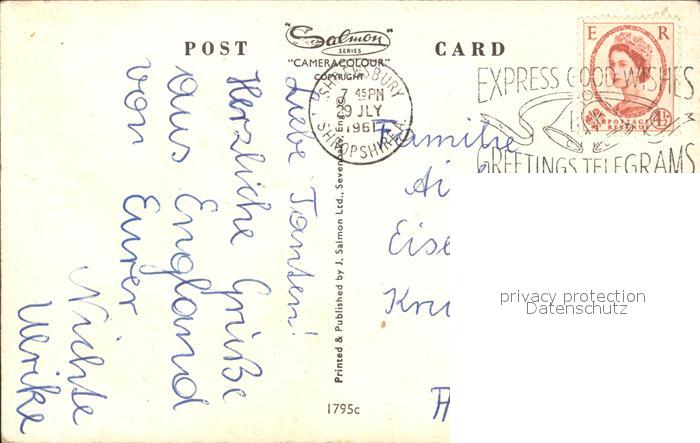 POST CARD
"Salmon"
SERIES
"CAMERACOLOUR"
COPYRIGHT
SHREWSBURY
7 45 PM
29 JLY
1961
SHROPSHIRE
EXPRESS GOOD WISHES
BY
GREETINGS TELEGRAMS
E R
POSTAGE
REVENUE
4½
Liebe Tanten!
Herzliche Grüße
aus England
von Eurer
Nichte
Ulrike
Printed & Published by J. Salmon Ltd., Sevenoaks, Eng. ©
1795c
Familie
Eise
Kru
privacy protection
Datenschutz